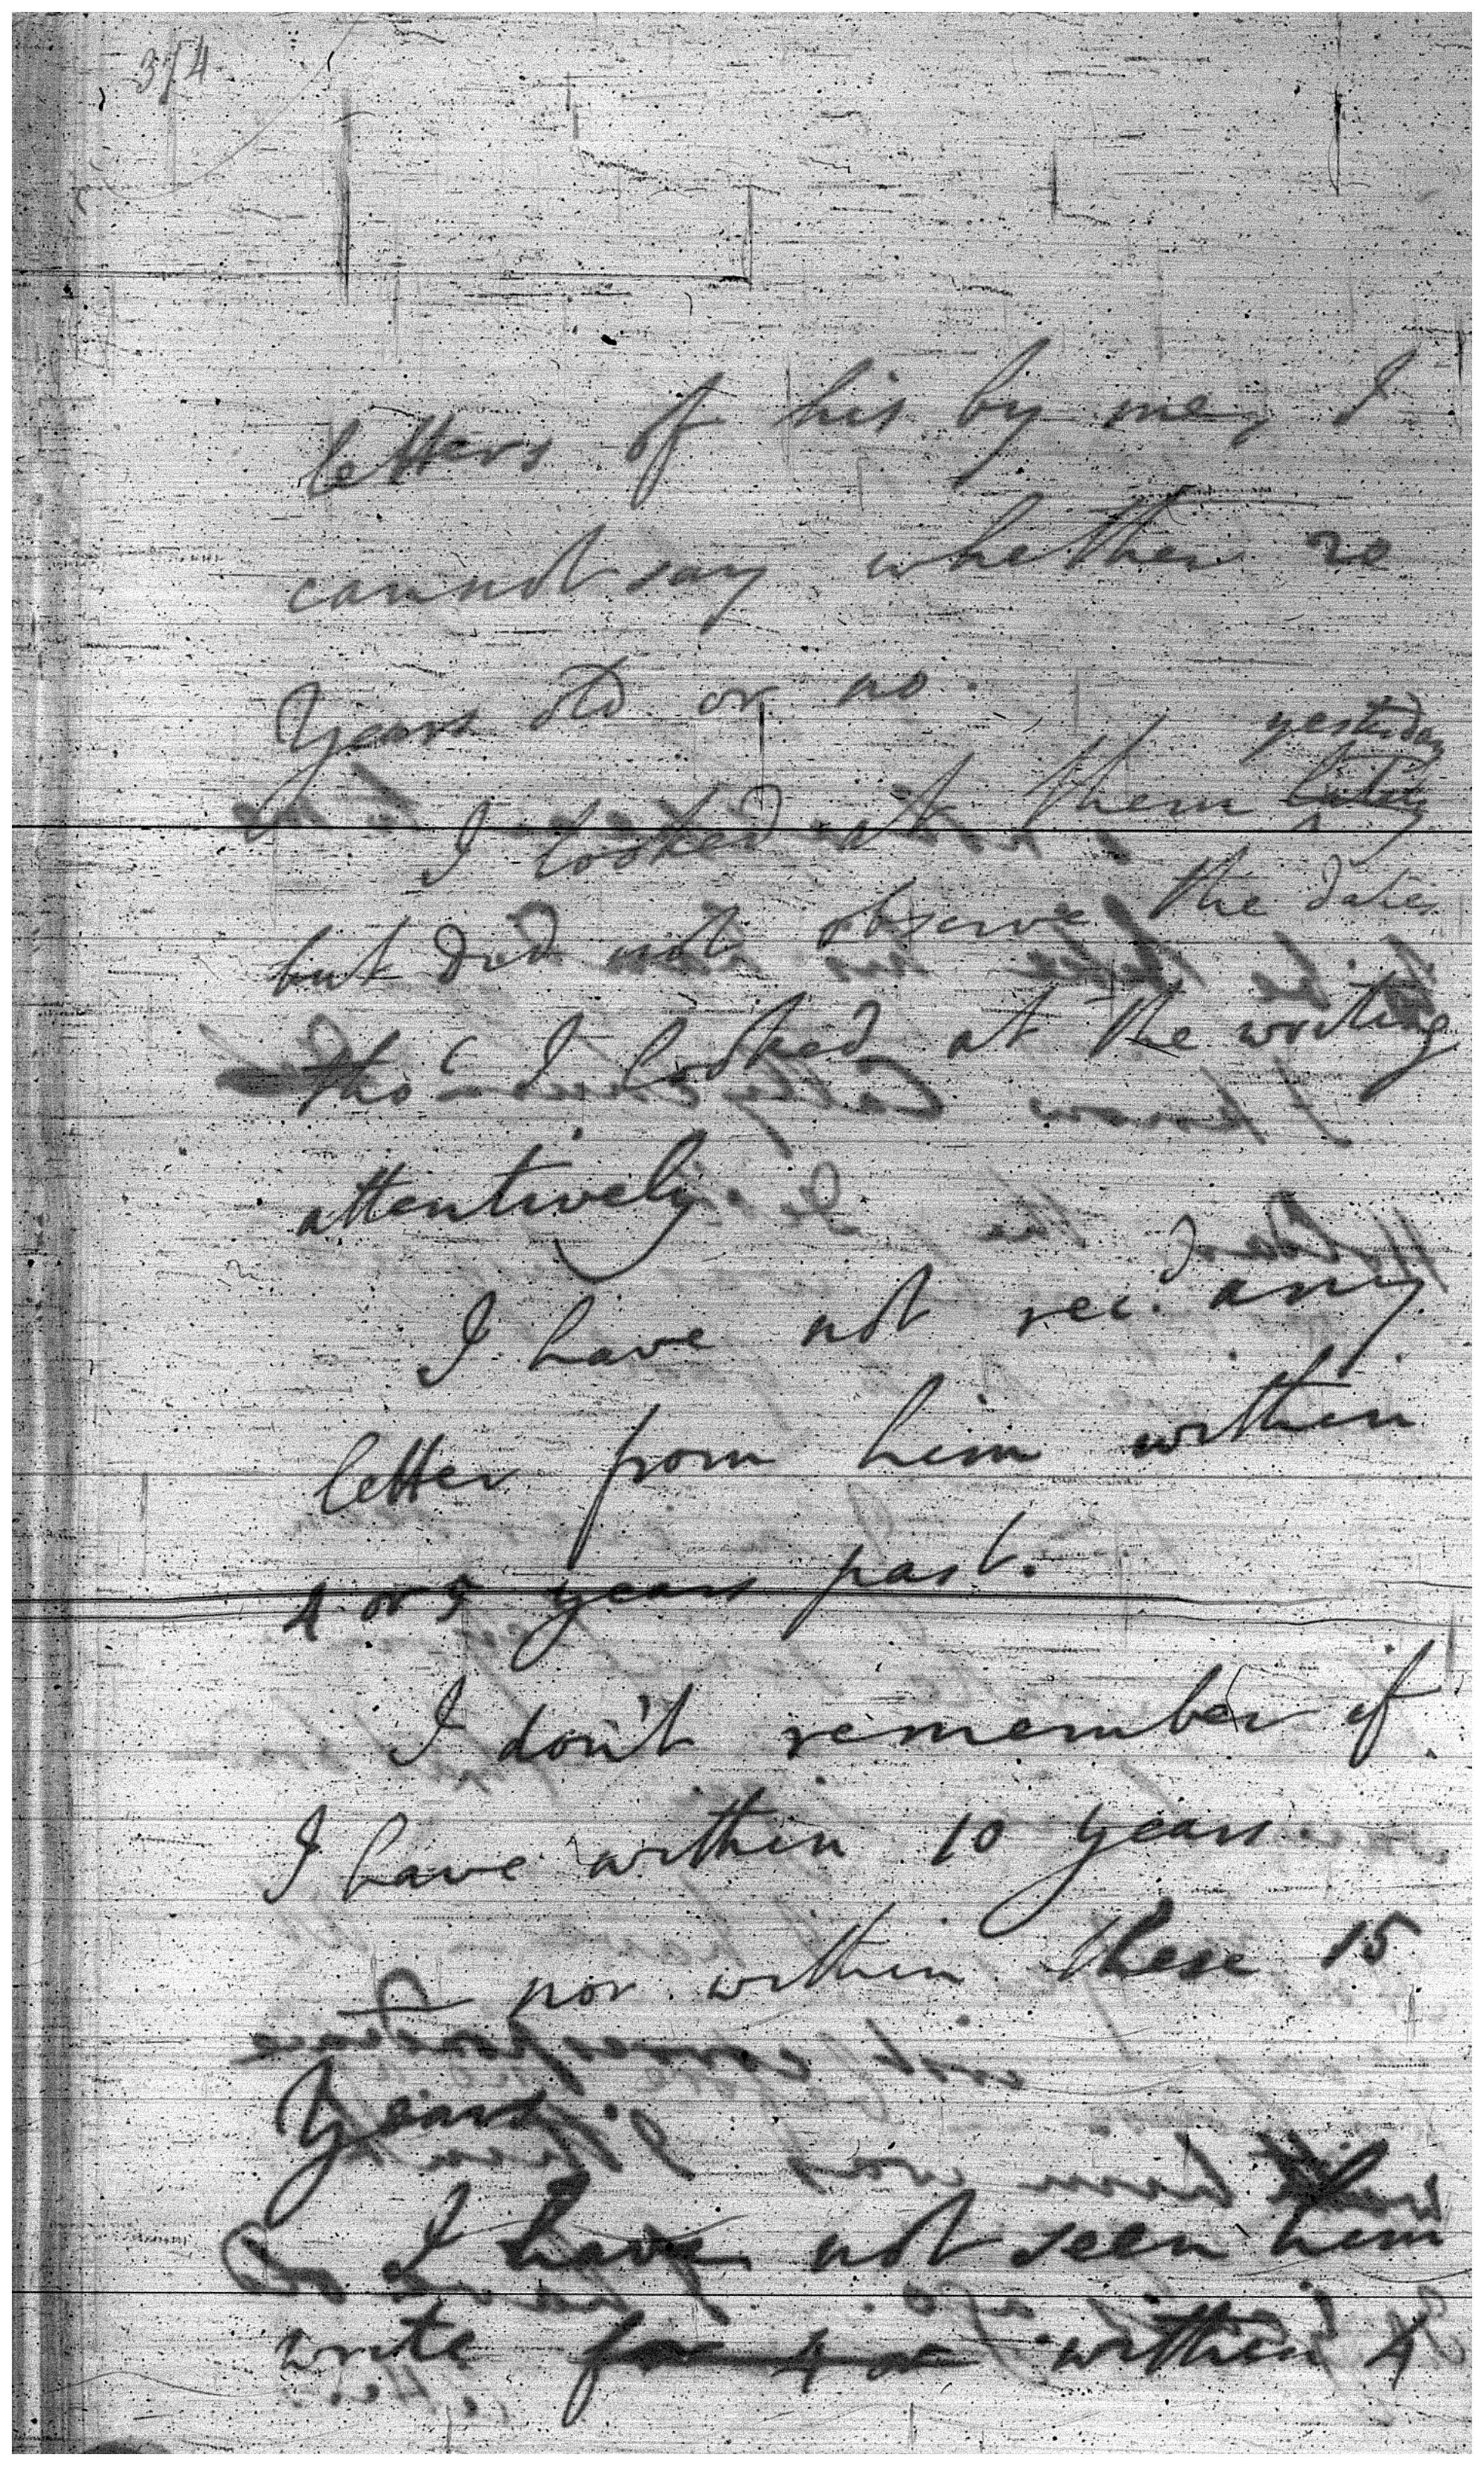 374
letters of his by me, I
cannot say whether 20
Years old or no.
yesterday
I looked at them
but did not observe the dates
tho' I looked at the writing
attentively.
I have not rec.d any
letter from him within
4 or 5 years past.
I don't remember if
I have within 10 years.
nor within these 15
Years.
I have not seen him
write for 4 or within 4